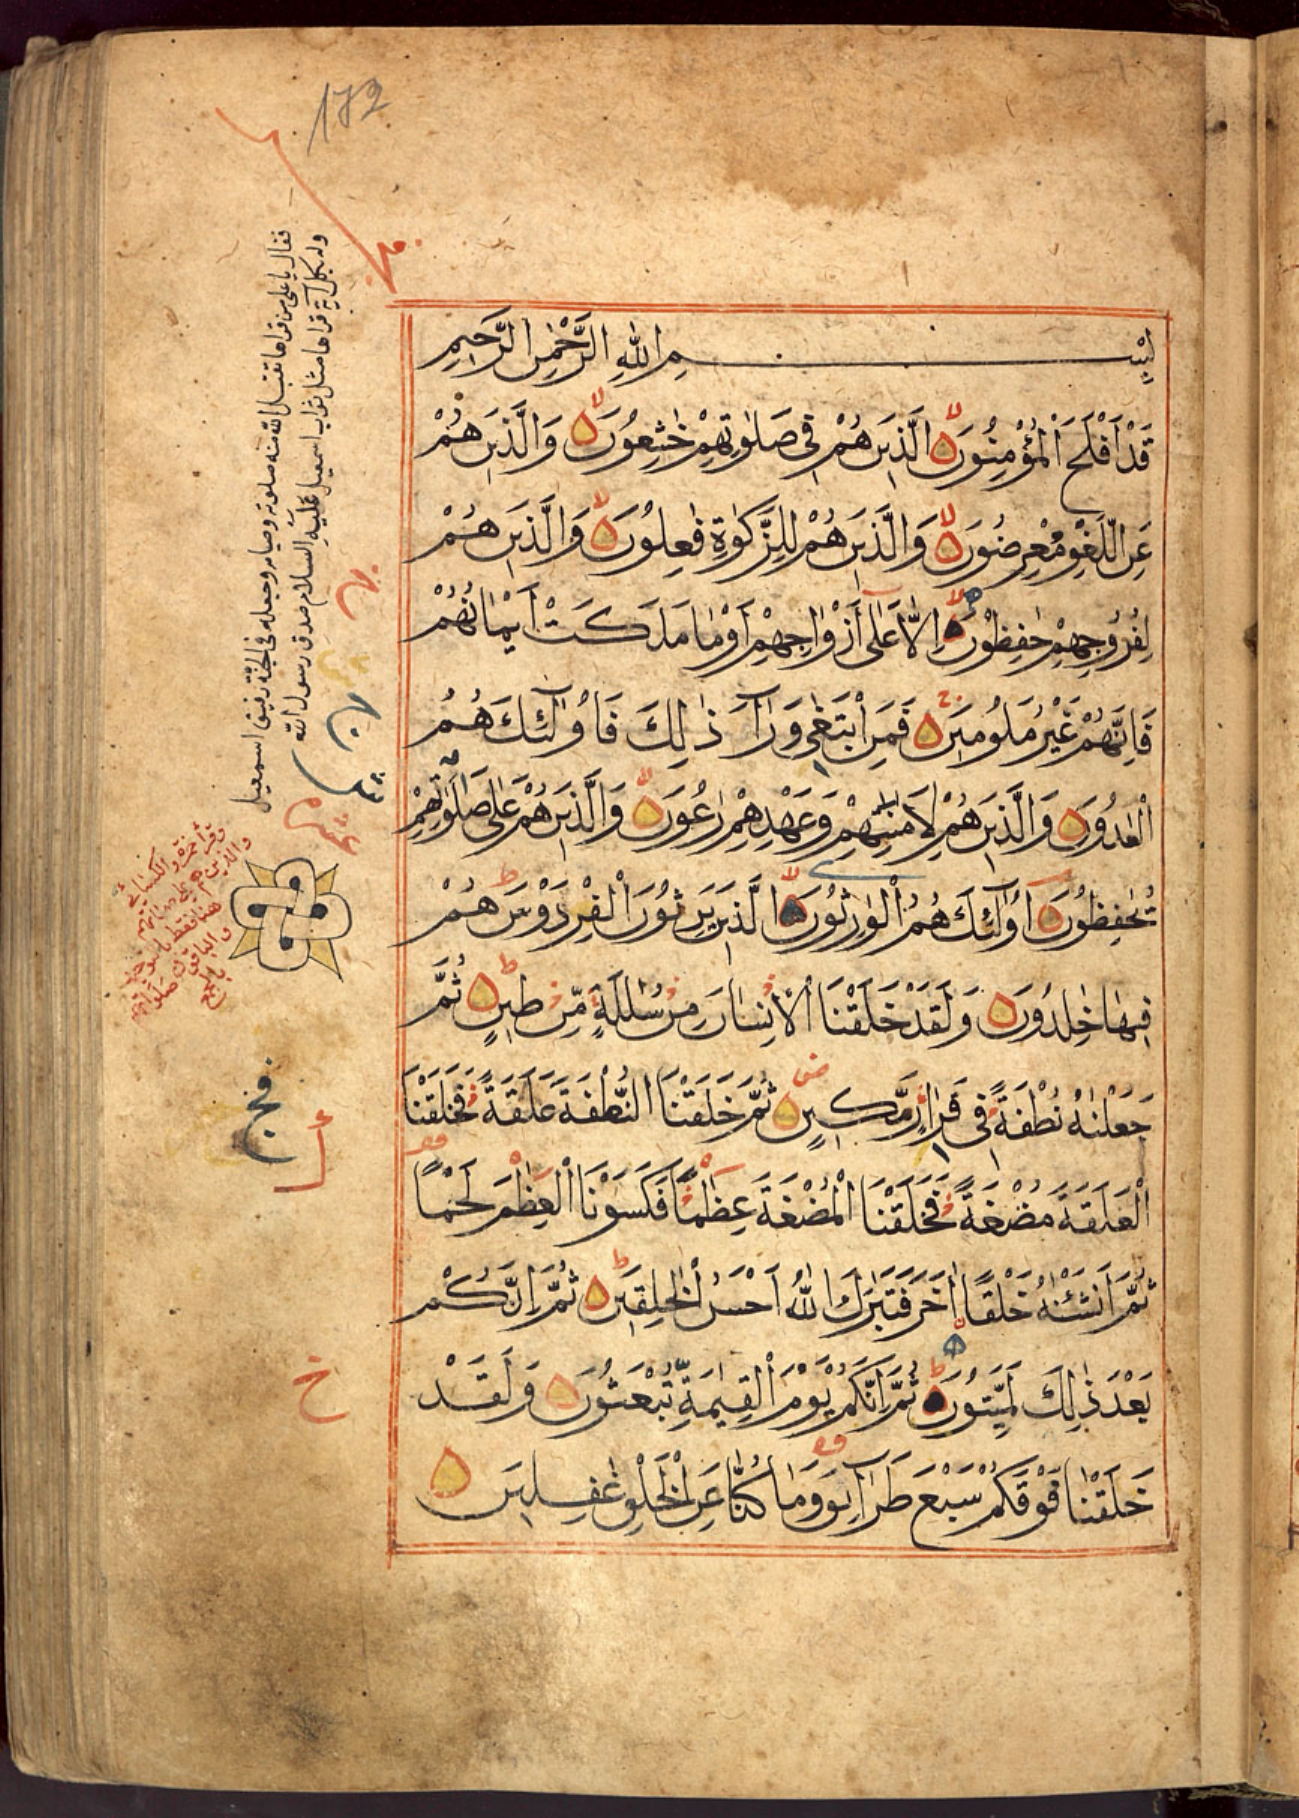 172
بِسْمِ اللّٰهِ الرَّحْمٰنِ الرَّحِيمِ
قَدْ اَفْلَحَ الْمُؤْمِنُونَ الَّذِينَ هُمْ فِي صَلٰوتِهِمْ خٰشِعُونَ وَالَّذِينَ هُمْ
عَنِ اللَّغْوِ مُعْرِضُونَ وَالَّذِينَ هُمْ لِلزَّكٰوةِ فٰعِلُونَ وَالَّذِينَ هُمْ
لِفُرُوجِهِمْ حٰفِظُونَ اِلَّا عَلٰٓى اَزْوَاجِهِمْ اَوْ مَا مَلَكَتْ اَيْمَانُهُمْ
فَاِنَّهُمْ غَيْرُ مَلُومِينَ فَمَنِ ابْتَغٰى وَرَآءَ ذٰلِكَ فَاُولٰٓئِكَ هُمُ
الْعٰدُونَ وَالَّذِينَ هُمْ لِاَمٰنٰتِهِمْ وَعَهْدِهِمْ رٰعُونَ وَالَّذِينَ هُمْ عَلٰى صَلَوٰتِهِمْ
يُحٰفِظُونَ اُولٰٓئِكَ هُمُ الْوٰرِثُونَ الَّذِينَ يَرِثُونَ الْفِرْدَوْسَ هُمْ
فِيهَا خٰلِدُونَ وَلَقَدْ خَلَقْنَا الْاِنْسَانَ مِنْ سُلٰلَةٍ مِّنْ طِينٍ ثُمَّ
جَعَلْنٰهُ نُطْفَةً فِي قَرَارٍ مَّكِينٍ ثُمَّ خَلَقْنَا النُّطْفَةَ عَلَقَةً فَخَلَقْنَا
الْعَلَقَةَ مُضْغَةً فَخَلَقْنَا الْمُضْغَةَ عِظٰمًا فَكَسَوْنَا الْعِظٰمَ لَحْمًا
ثُمَّ اَنْشَئْنٰهُ خَلْقًا اٰخَرَ فَتَبَارَكَ اللّٰهُ اَحْسَنُ الْخٰلِقِينَ ثُمَّ اِنَّكُمْ
بَعْدَ ذٰلِكَ لَمَيِّتُونَ ثُمَّ اِنَّكُمْ يَوْمَ الْقِيٰمَةِ تُبْعَثُونَ وَلَقَدْ
خَلَقْنَا فَوْقَكُمْ سَبْعَ طَرَآئِقَ وَمَا كُنَّا عَنِ الْخَلْقِ غٰفِلِينَ
فقال يا على من قراها تقبل الله منه صلوته وصيامه وجعله فى الجنة رفيق اسمعيل
وله بكل آية قراها مثل ثواب اسمعيل عليه السلام صدق رسول الله
وقرأ حمزة والكسائى
والذين هم على صلاتهم